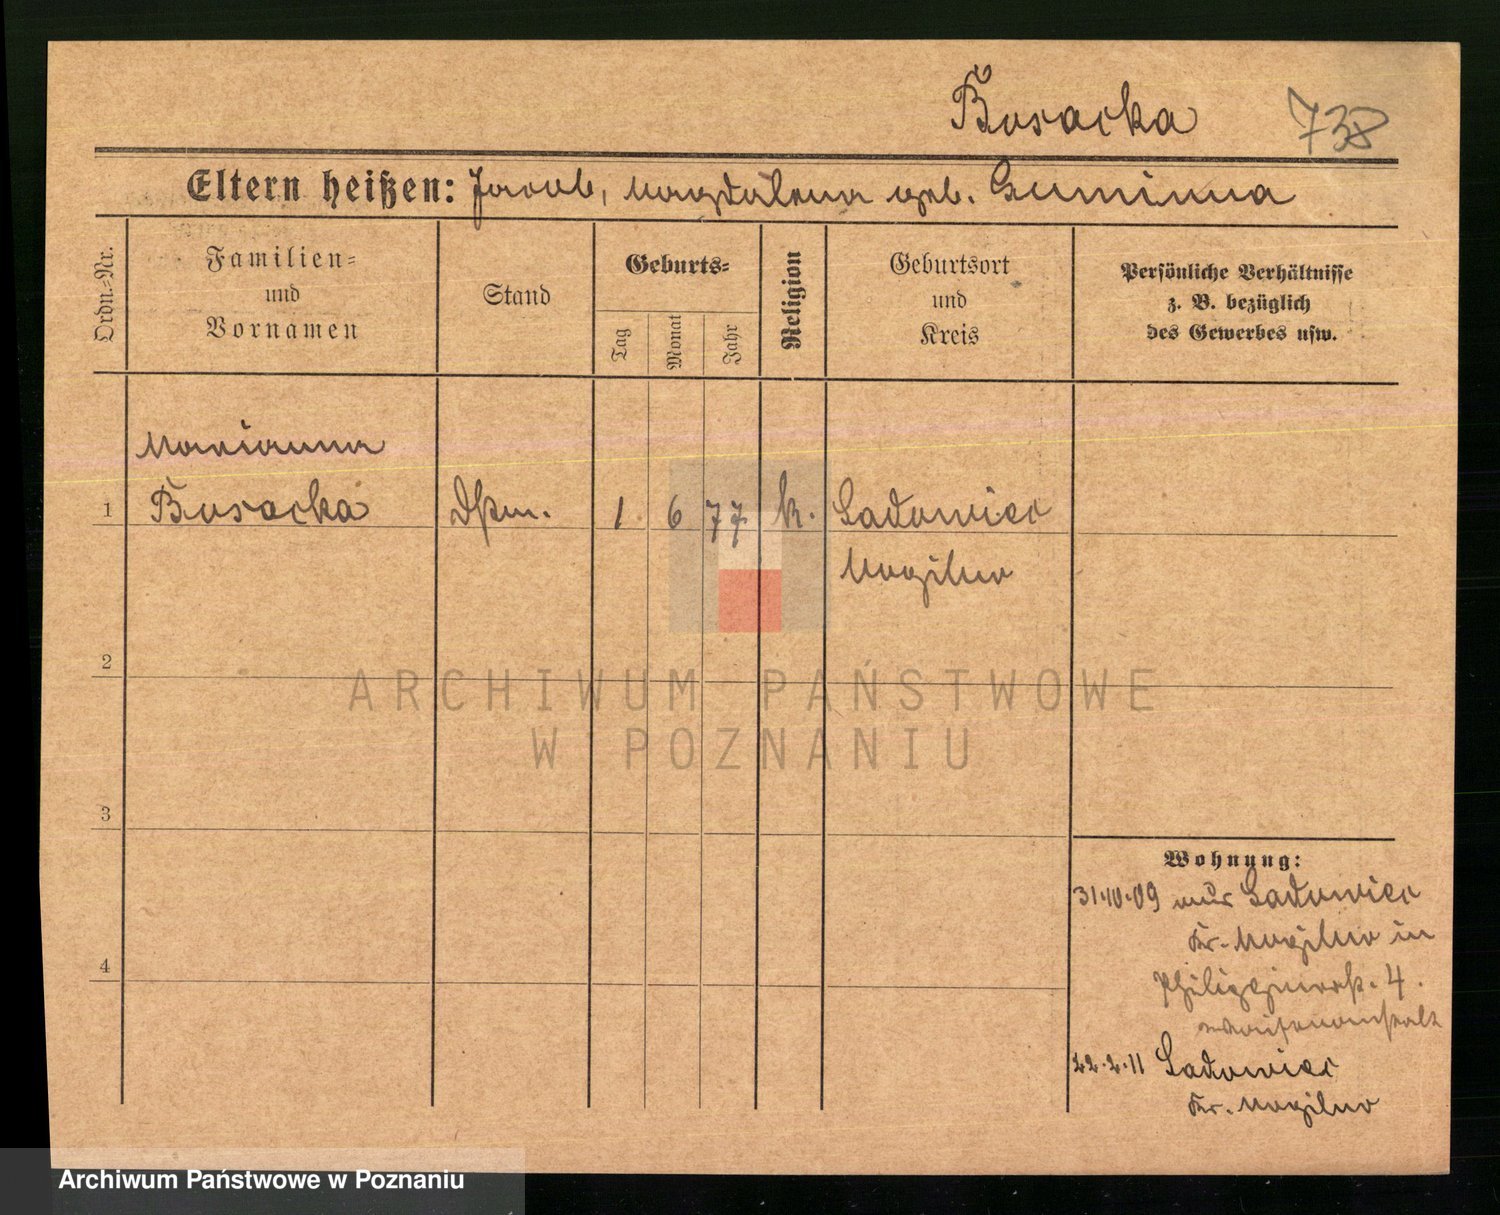 Busacka 738
Eltern heißen: Jacob, Magdalena geb. Guminna
Ordn.-Nr.
Familien-
und
Vornamen
Stand
Geburts-
Tag
Monat
Jahr
Religion
Geburtsort
und
Kreis
Persönliche Verhältnisse
z. B. bezüglich
des Gewerbes usw.
Marianna
1 Busacka Dstm. 1. 6. 77 k. Sadowiec
Mogilno
2
3
4
Wohnung:
31.10.09 aus Sadowiec
Kr. Mogilno in
4.
22.2.11 Sadowiec
Kr. Mogilno
ARCHIWUM PAŃSTWOWE
W POZNANIU
Archiwum Państwowe w Poznaniu